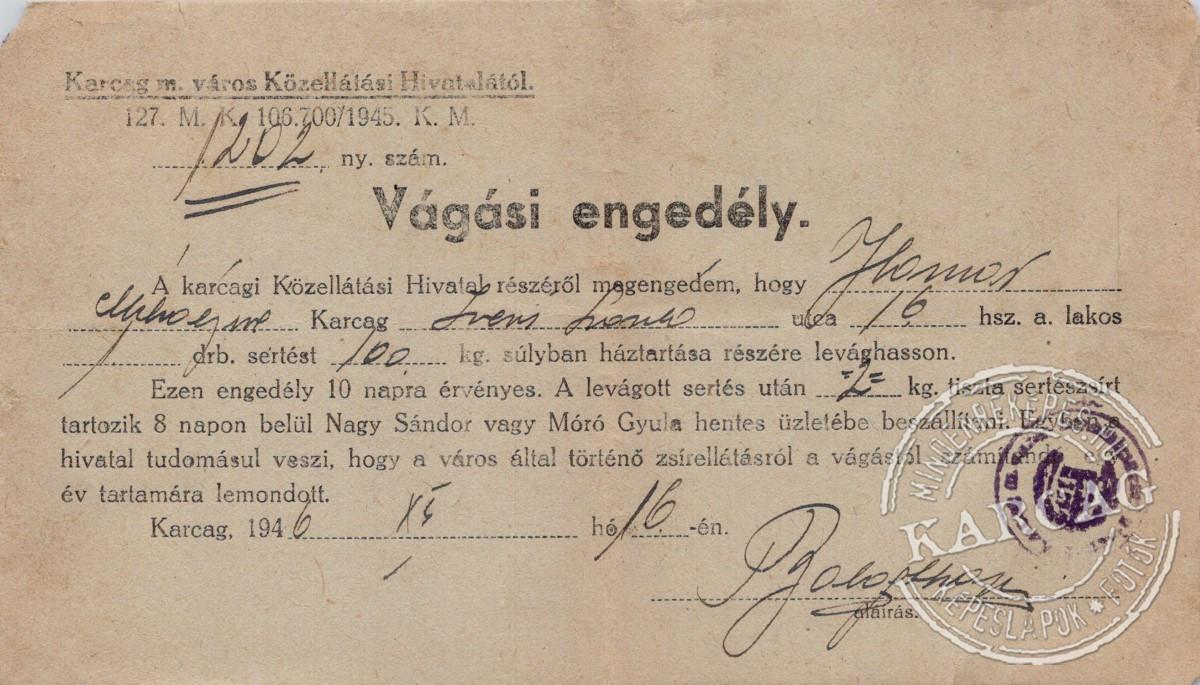 Karcag m. város Közellátási Hivatalától.
127. M. K. 106.700/1945. K. M.
1202 ny. szám.
Vágási engedély.
A karcagi Közellátási Hivatal részéről megengedem, hogy
Karcag utca 16 hsz. a. lakos
1 drb. sertést 100 kg. súlyban háztartása részére levághasson.
Ezen engedély 10 napra érvényes. A levágott sertés után =2= kg. tiszta sertészsírt
tartozik 8 napon belül Nagy Sándor vagy Móró Gyula hentes üzletébe beszállítani. Egyben a
hivatal tudomásul veszi, hogy a város által történő zsírellátásról a vágástól számítandó egy
év tartamára lemondott.
Karcag, 1946 XI hó 16 -én.
aláírás.
MINDENKÉPESLAP
KARCAG
KÉPESLAPOK * FOTÓK